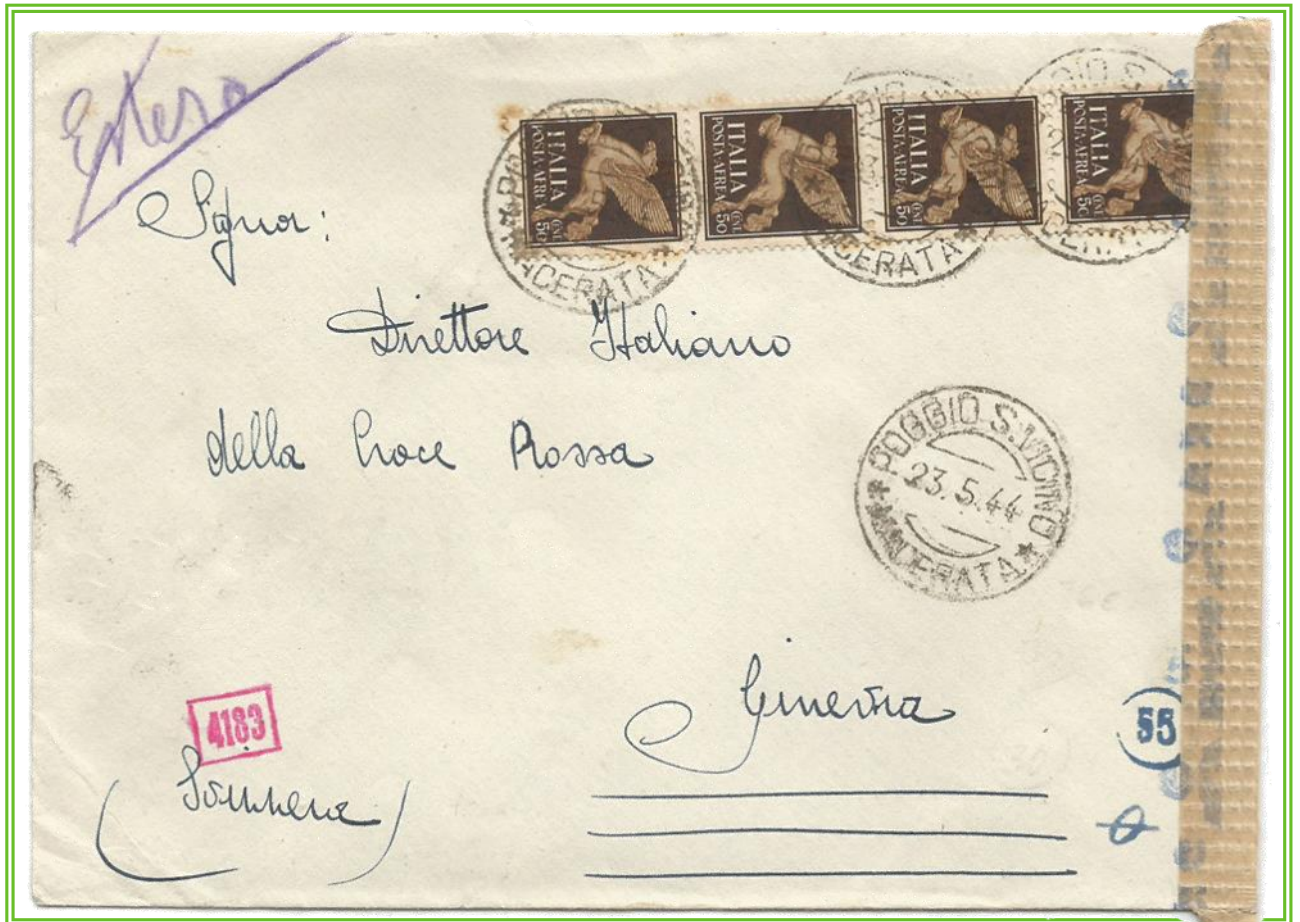 Estero
ITALIA
POSTA·AEREA
CENT. 50
ITALIA
POSTA·AEREA
CENT. 50
ITALIA
POSTA·AEREA
CENT. 50
ITALIA
POSTA·AEREA
CENT. 50
MACERATA
Signor:
Direttore Italiano
della Croce Rossa
POGGIO S. VICINO
23.5.44
MACERATA
Ginevra
4183
55
(Svizzera)